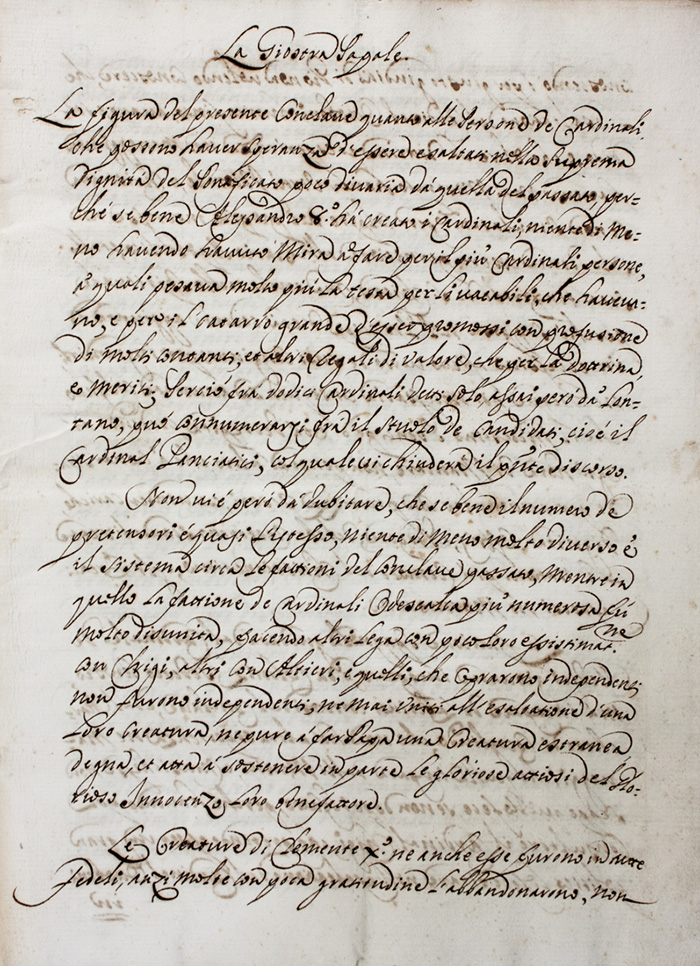 La Giostra Papale.
La figura del presente Conclave quanto alle Persone de Cardinali,
che possono haver speranza d'essere esaltati nella suprema
Dignità del Pontificato poco divaria da quella del passato, per=
ché se bene Alessandro 8.º há creato i Cardinali, niente di Me=
no havendo havuto Mira a fare per il più Cardinali persone,
a' quali pesava molto più la testa per li vacabili, che haveva=
no, e per il Catarro grande d'esser promossi con profusione
di molti contanti, et altri Regali di valore, che per la Dottrina,
e Meriti; Perciò fra dodici Cardinali Uno solo assai però da Lon=
tano, può connumerarsi frà il stuolo de Candidati, cioé il
Cardinal Panciatici, col quale si chiuderà il pnte discorso.
Non vi é però da dubitare, che se bene il numero de
pretensori é quasi l'istesso, niente di Meno molto diverso é
il sistema circa le fattioni del Conclave passato, Mentre in
quello la fattione de Cardinali Odescalca più numerosa fú
molto disunita, facendo altri lega con poco loro essistimatne
con Chigi, altri con Altieri, e quelli, che sperarono independenti
non furono independenti, ne mai uniti all'esaltatione d'una
loro Creatura, ne pure á far Papa una Creatura estranea
degna, et atta á sostenere in parte le gloriose attioni del Glo=
rioso Innocenzo loro Benefattore.
Le Creature di Clemente X.º ne anche esse furono in tutte
fedeli, anzi molte con poca gratitudine l'abbandonarono, non